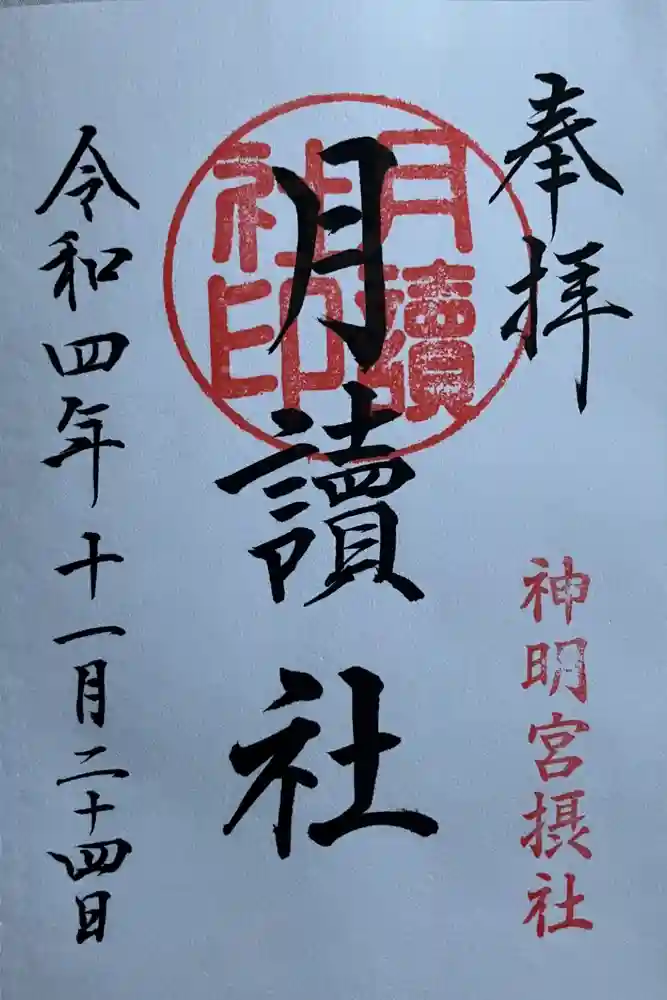 奉拝
神明宮摂社
月讀社
月讀社印
令和四年十一月二十四日